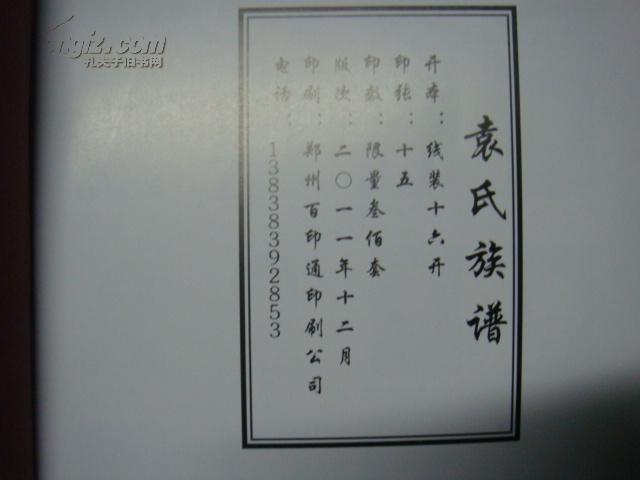 袁氏族谱
开本：线装十六开
印张：十五
印数：限量叁佰套
版次：二〇一一年十二月
印刷：郑州百印通印刷公司
电话：13838392853
孔夫子旧书网